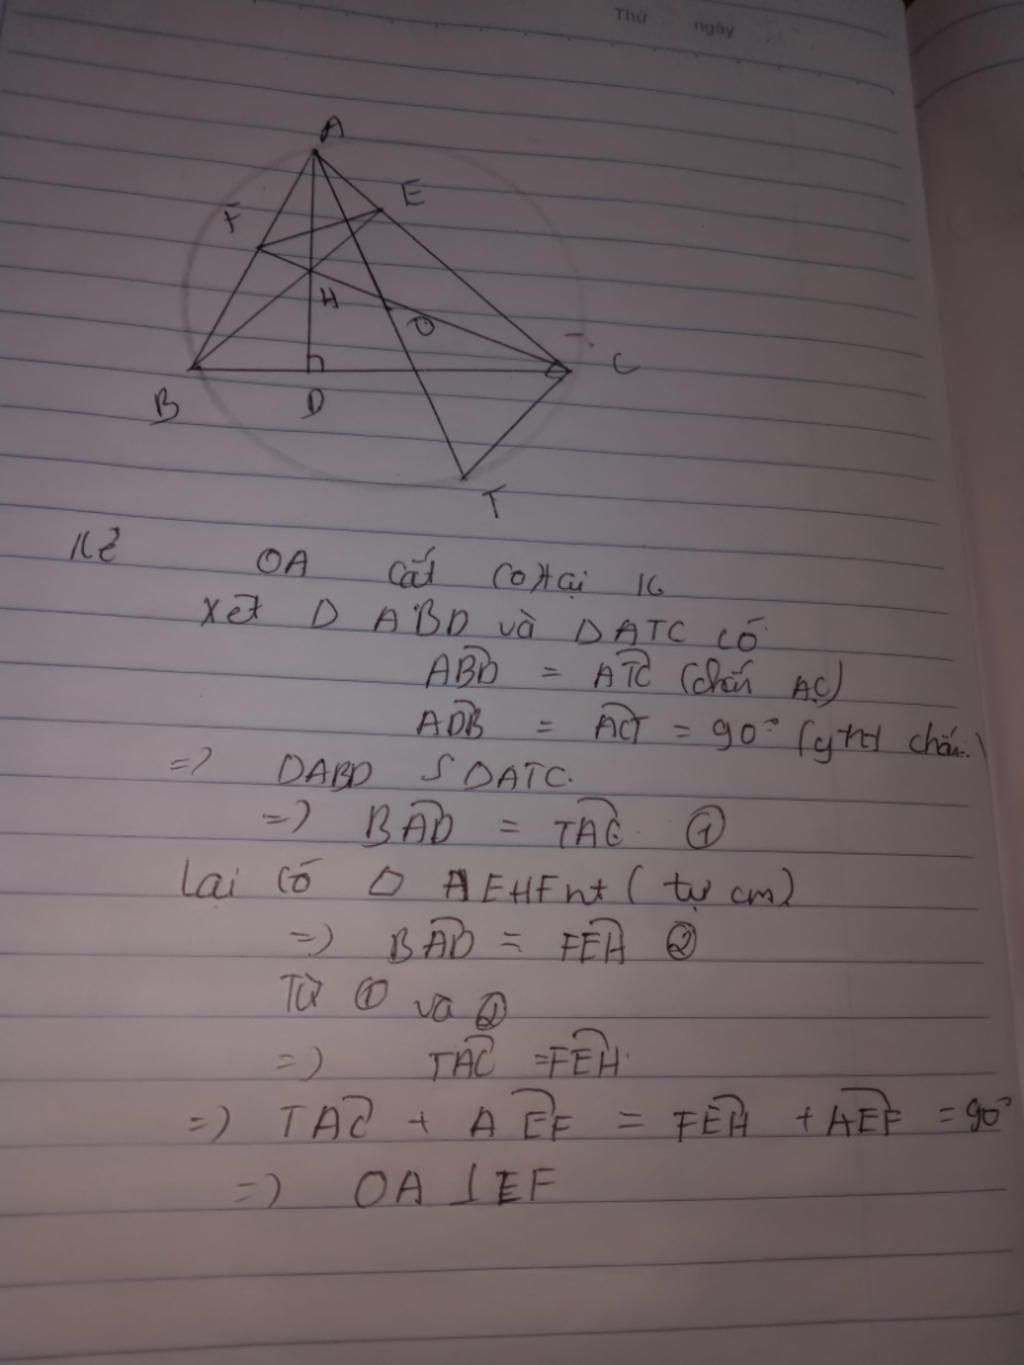 Thứ ngày
A
E
F
H
O
C
B
D
T
Kẻ OA cắt (O) tại K
Xét Δ ABD và ΔATC có
ABD = ATC (chắn AC)
ADB = ACT = 90° (gnt chắn)
=> ΔABD S ΔATC.
=> BAD = TAC ①
Lại có ◇ AEHF nt ( tự cm)
=> BAD = FEH ②
Từ ① và ②
=> TAC = FEH.
=> TAC + AEF = FEH + AEF = 90°
=> OA ⊥ EF